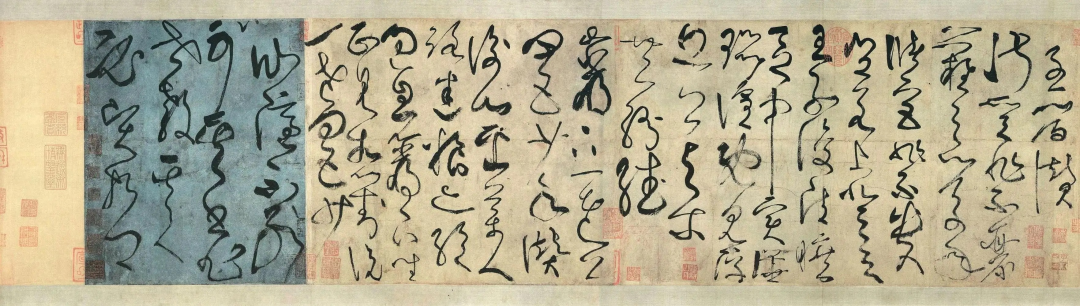 王子晉讚
淑質非不麗
難以之百年
儲宮非不貴
豈若上登天
王子復清曠
區中實譁
囂喧既見浮
丘公與爾
共紛繙
巖下一老公
四五少年讚
衡山採藥人
路迷糧亦絕
過息巖下坐
正見相對說
一老四五少
仙隱不別
可其書非
世教其人
必賢哲